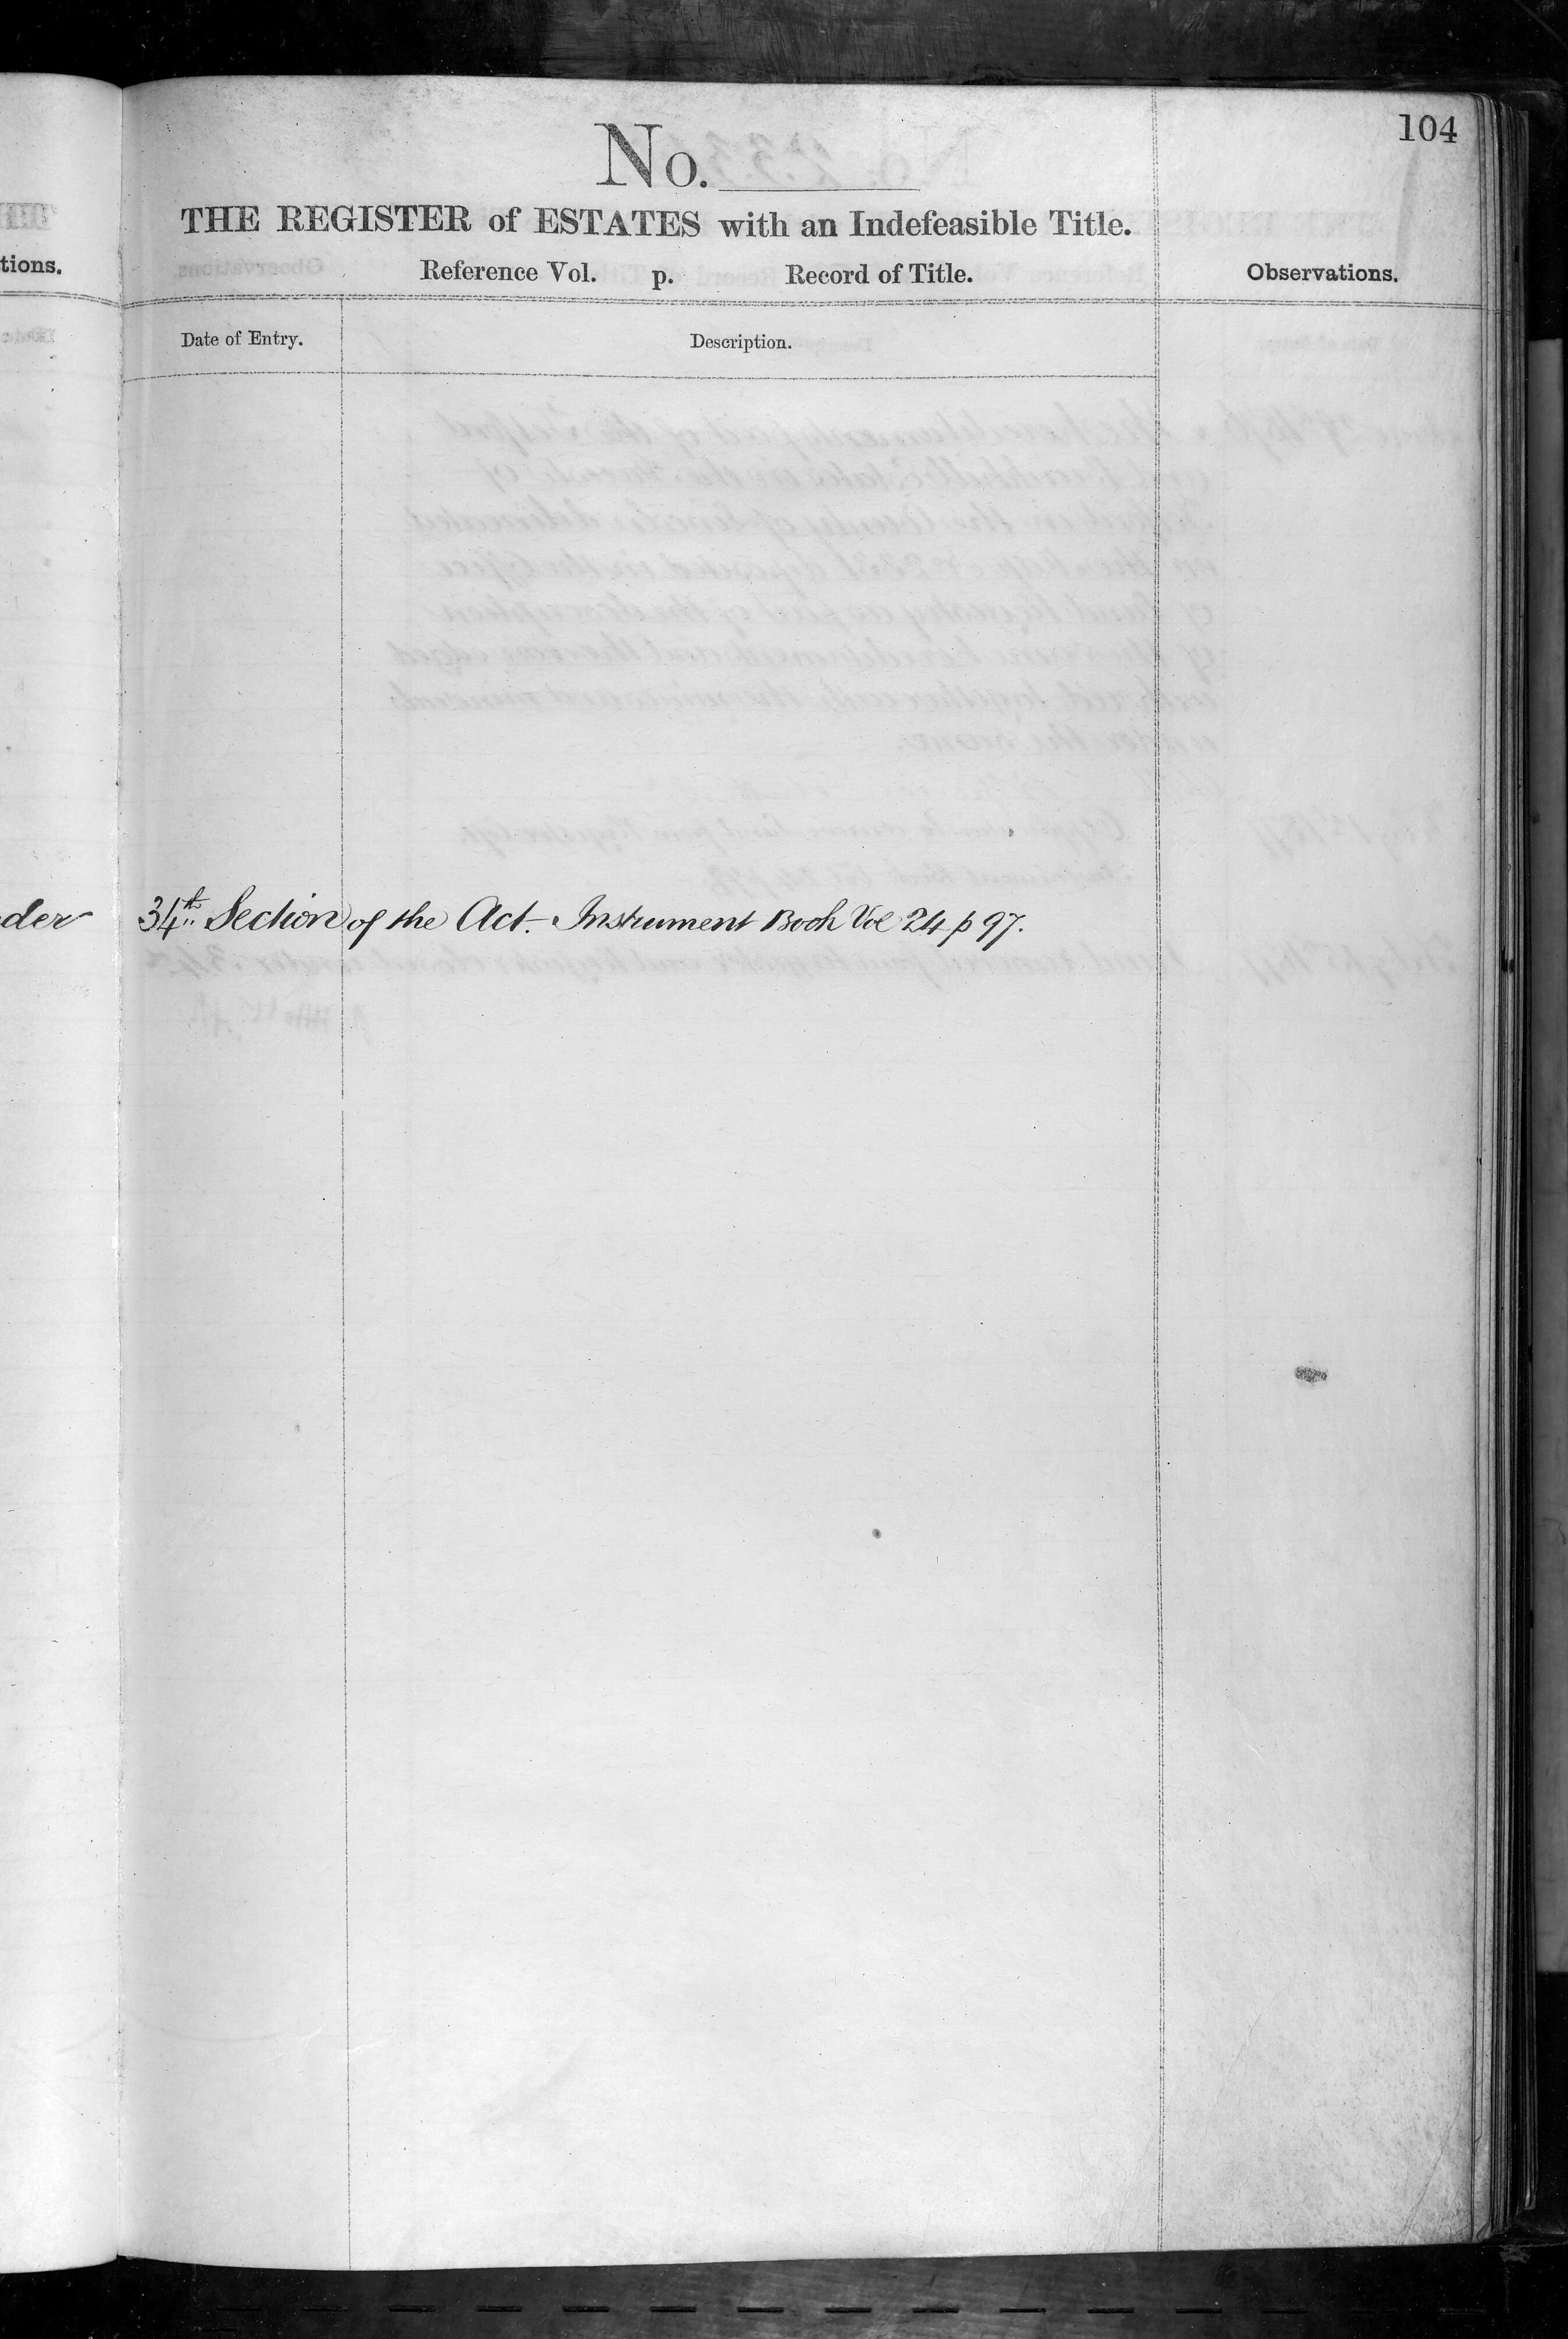 104
No.
THE REGISTER of ESTATES with an Indefeasible Title.
tions.
Reference Vol. p. Record of Title.
Observations.
Date of Entry.
Description.
der 34th Section of the Act. Instrument Book Vol 24 p 97.